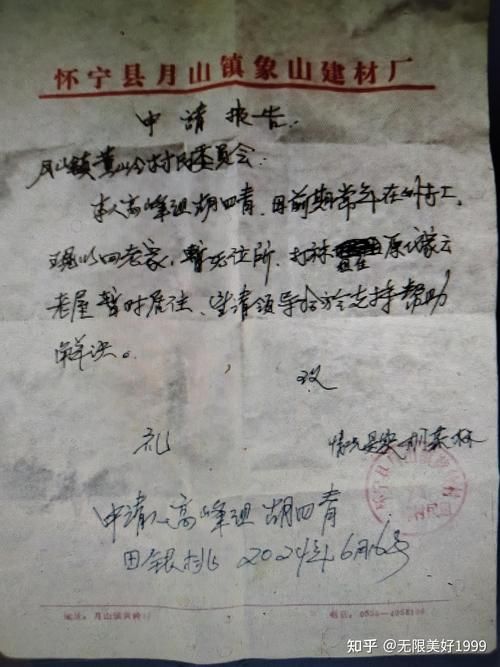 怀宁县月山镇象山建材厂
申请报告
月山镇黄岭村村民委员会:
本人高峰组胡四青,因前期常年在外打工,
现以回老家,暂无住所,打祘 原
老屋暂时居住,望请领导给于支持帮助
解决。
致
礼
情况是实
申请人高峰组 胡四青
田银桃 2024年6月16号
地址:月山镇黄岭
电话:
知乎 @无限美好1999